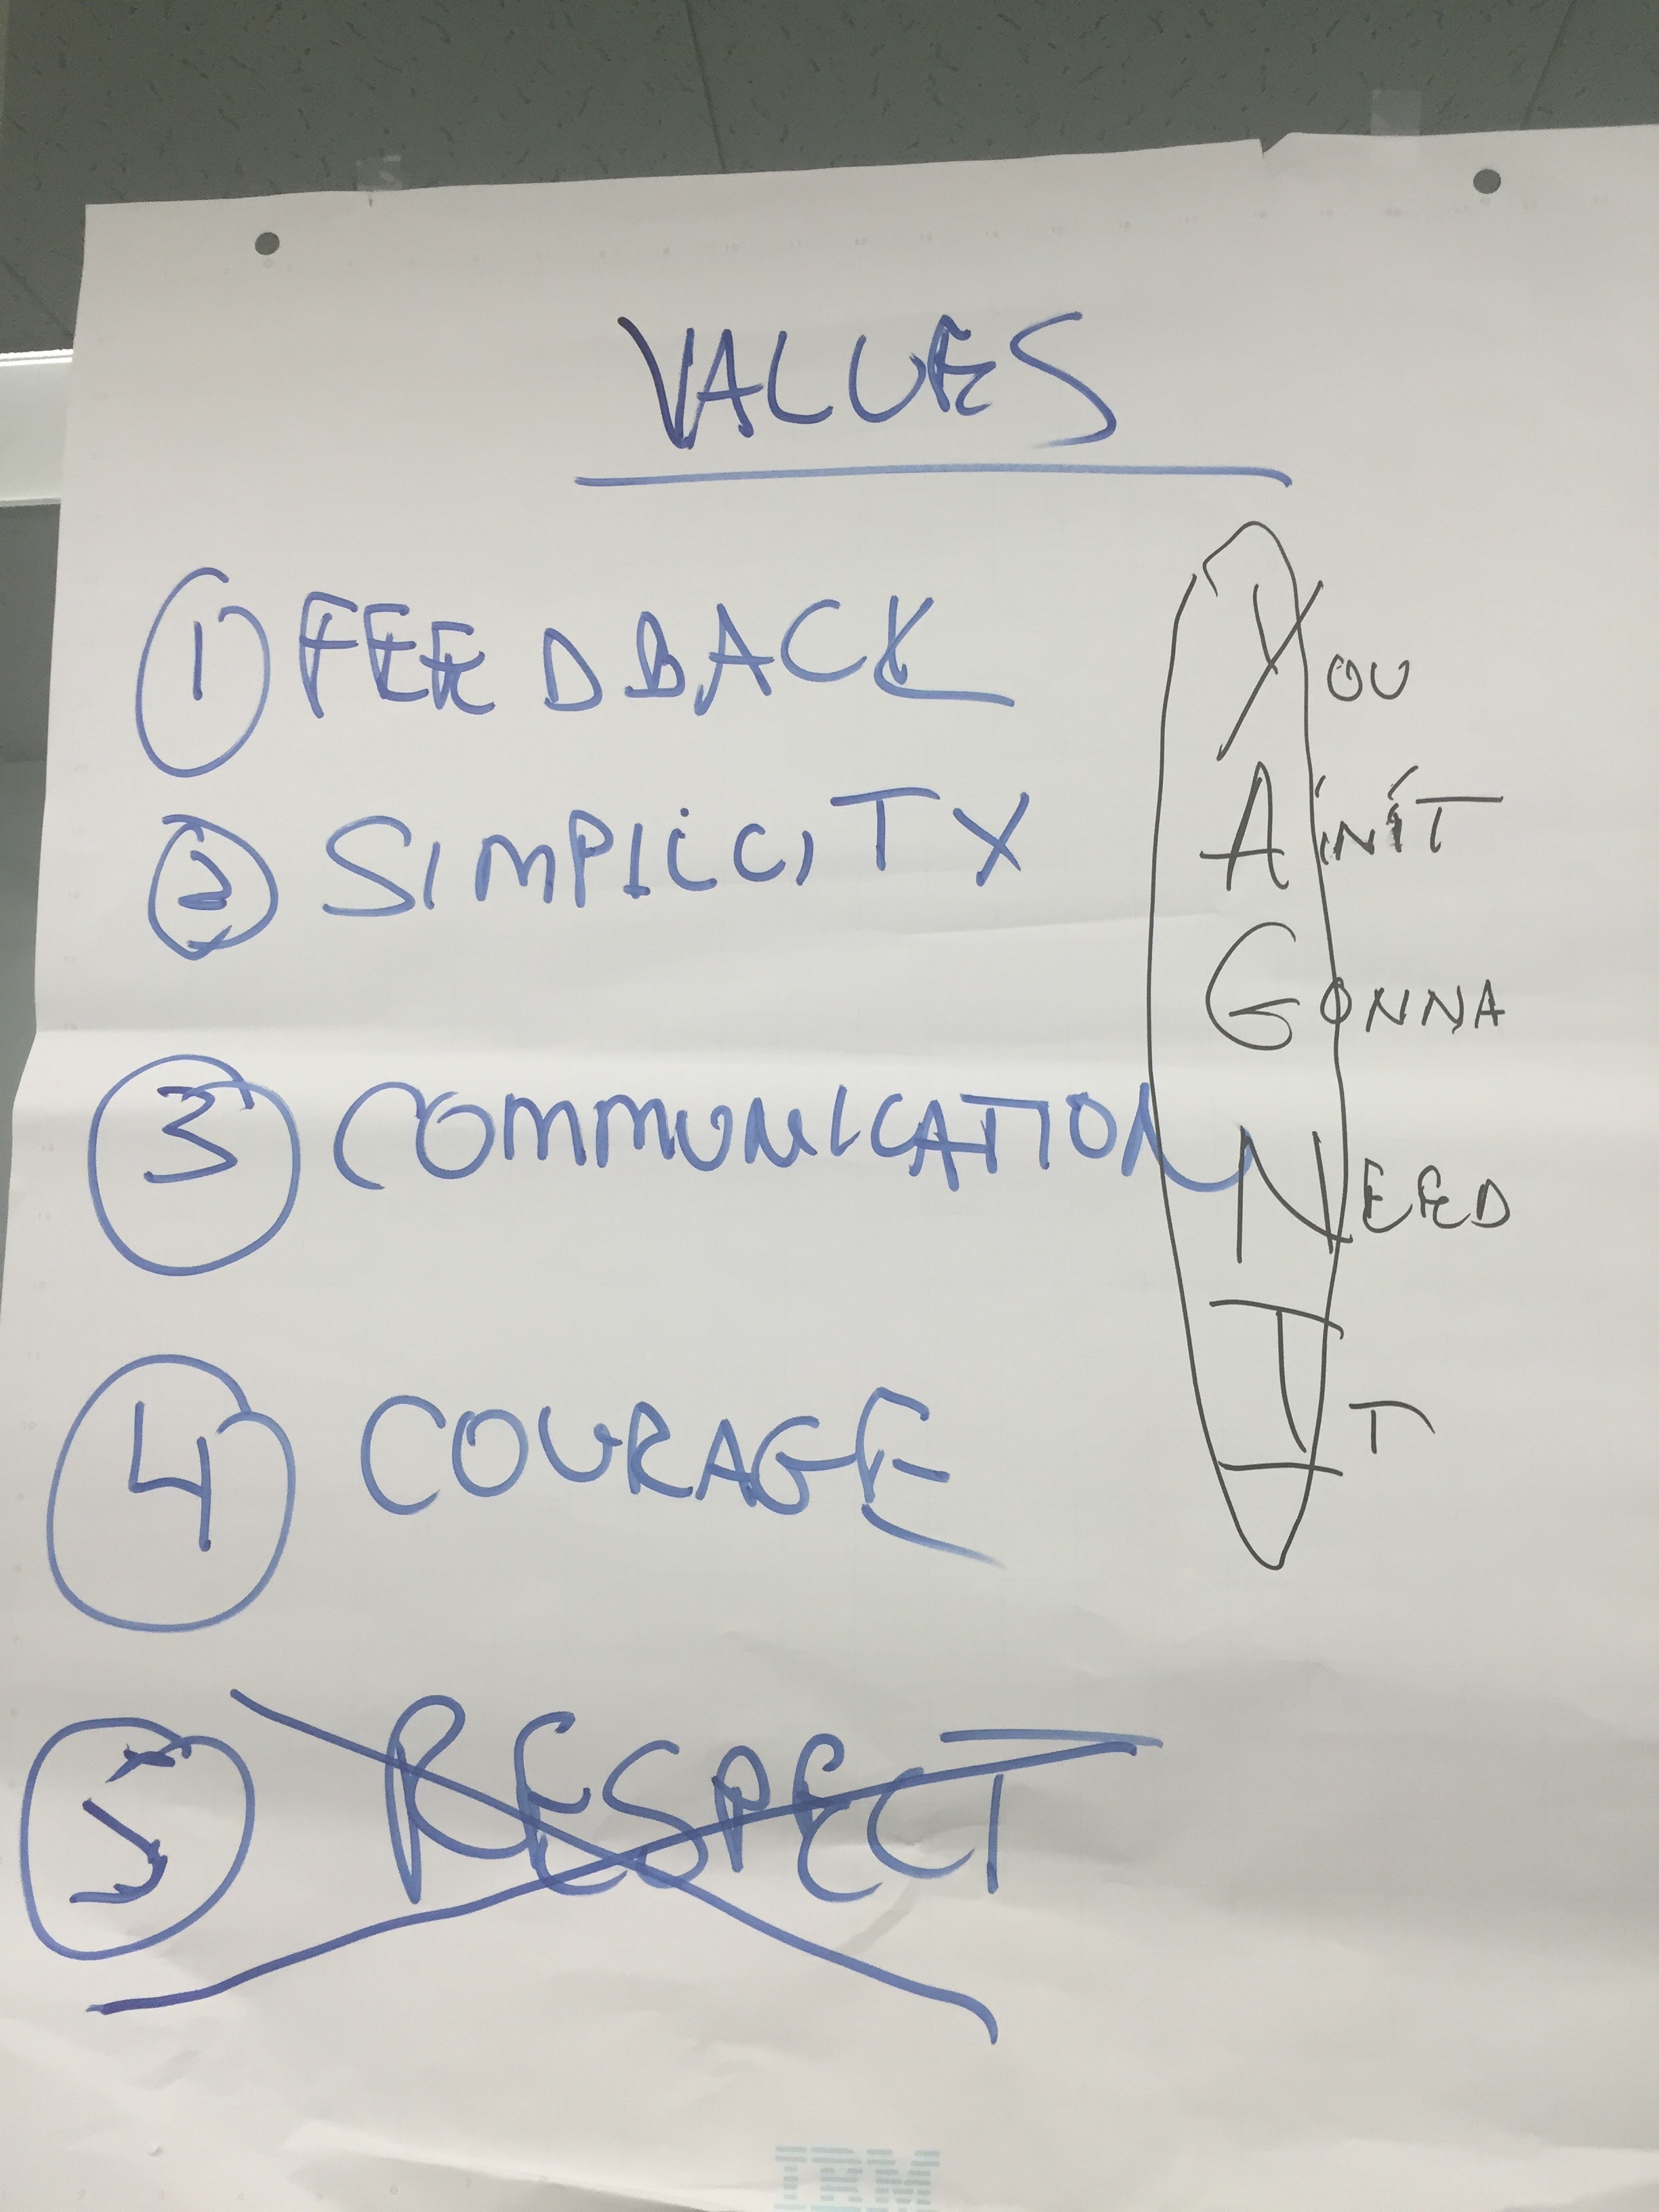 VALUES
1 FEEDBACK
2 SIMPLICITY
3 COMMUNICATION
4 COURAGE
5 RESPECT
YOU
AIN'T
GONNA
NEED
IT
IBM